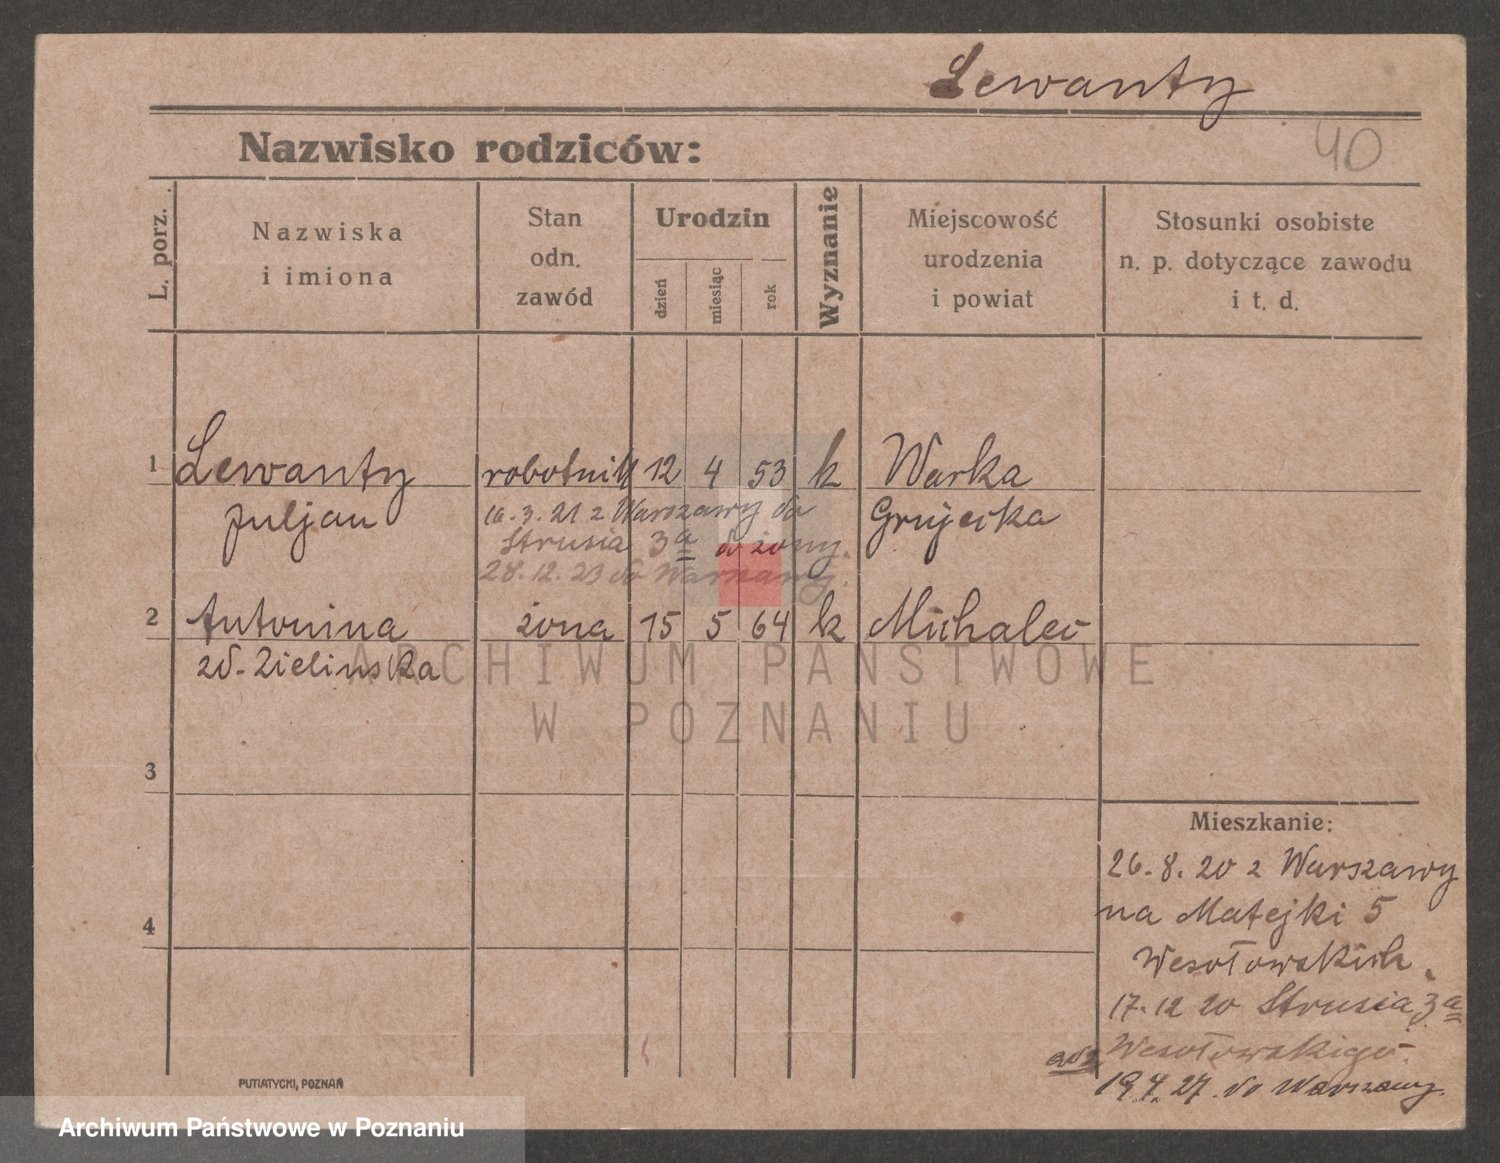 Lewanty
40
Nazwisko rodziców:
L. porz.
Nazwiska
i imiona
Stan
odn.
zawód
Urodzin
dzień
miesiąc
rok
Wyznanie
Miejscowość
urodzenia
i powiat
Stosunki osobiste
n. p. dotyczące zawodu
i t. d.
1 Lewanty robotnik 12 4 53 k Warka
Juljan 16.3.21 z Warszawy do Grujecka
Strusia 3a do żony.
28.12.23 do Warszawy.
2 Antonina żona 15 5 64 k Michalec
zd. Zielinska
ARCHIWUM PAŃSTWOWE
W POZNANIU
3
4
Mieszkanie:
26.8.20 z Warszawy
na Matejki 5
Wesołowskich.
17.12 20 Strusia 3a
Wesołowskiego.
19 4.27. do Warszawy
PUTIATYCKI, POZNAŃ
Archiwum Państwowe w Poznaniu